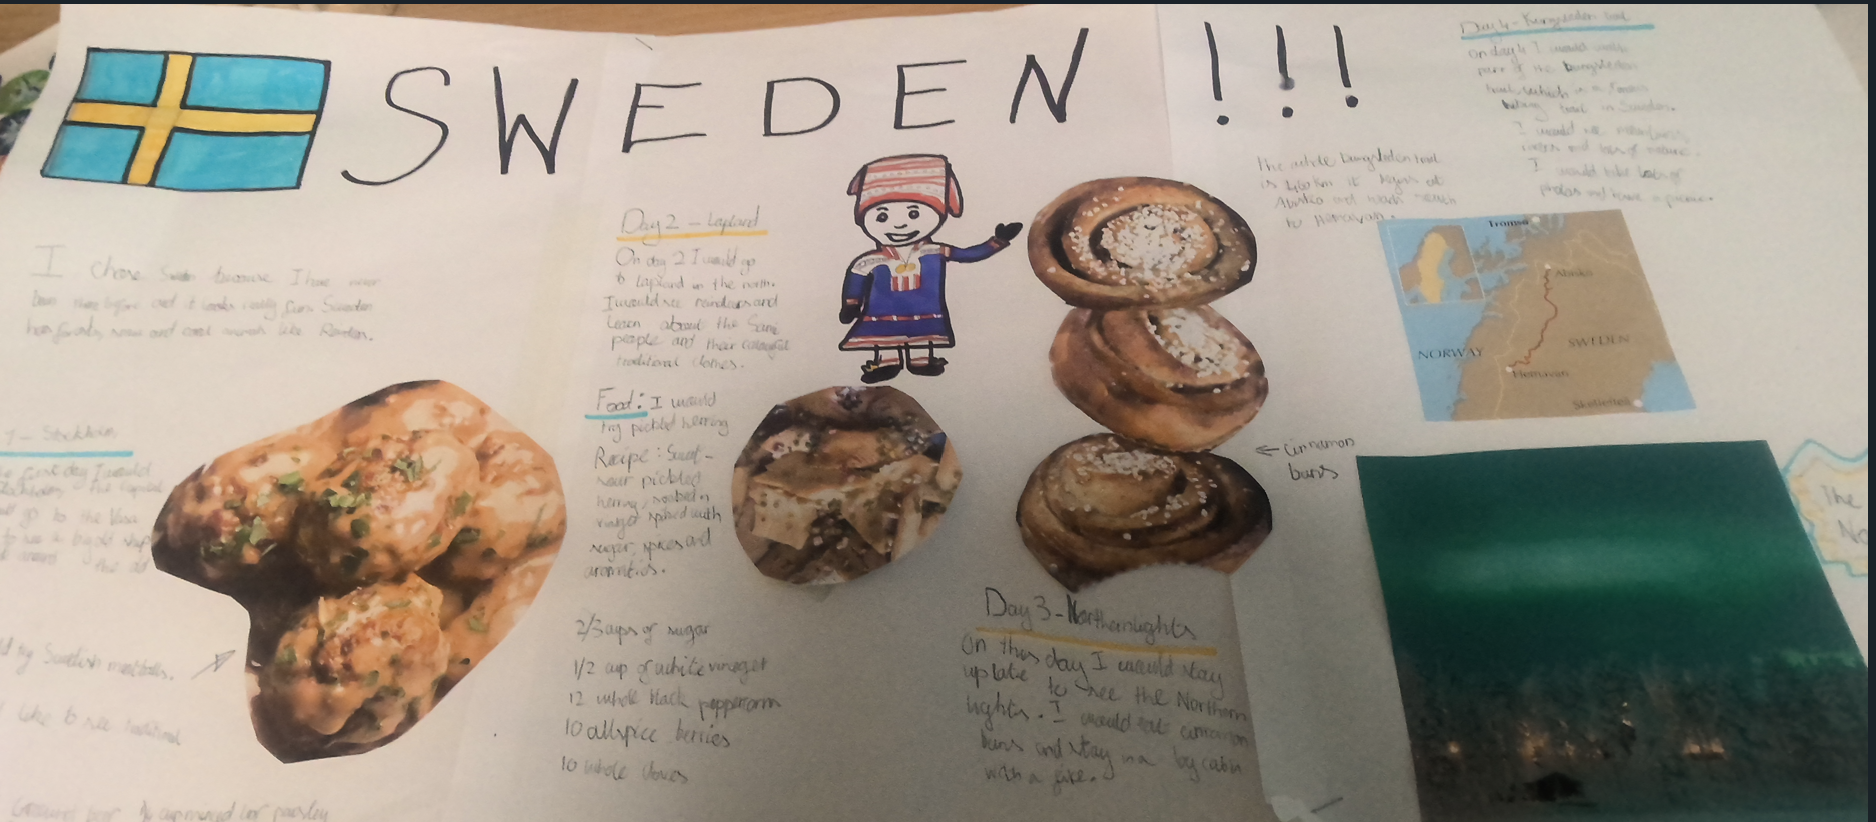 SWEDEN !!!
I chose Sweden because I have never
been there before and it looks really fun. Sweden
has forests, snow and cool animals like
1 - Stockholm
first day I would
the capital
go to the Vasa
to see a big old ship
around the old
try Swedish meatballs.
like to see traditional
Ground beef 1/4 cup minced parsley
Day 2 - Lapland
On day 2 I would go
to Lapland in the north.
I would see reindeers and
learn about the Sami
people and their colourful
traditional clothes.
Food: I would
try pickled herring
Recipe: Sweet-
sour pickled
herring, soaked in
vinegar spiced with
sugar, spices and
aromatics.
2/3 cups of sugar
1/2 cup of white vinegar
12 whole black peppercorn
10 allspice berries
10 whole cloves
← cinnamon
buns
Day 3 - Northern lights
On this day I would stay
up late to see the Northern
lights. I would eat cinnamon
buns and stay in a cabin
with a fire.
Day 4 - Kungsleden trail
On day 4 I would walk
part of the Kungsleden
trail, which is a famous
hiking trail in Sweden.
I would see mountains,
rivers and lots of nature.
I would take lots of
photos and have a picnic.
The whole Kungsleden trail
is 460km it begins at
Abisko and
to Hemavan.
Tromsø
Abisko
NORWAY
SWEDEN
Hemavan
Skellefteå
The
No